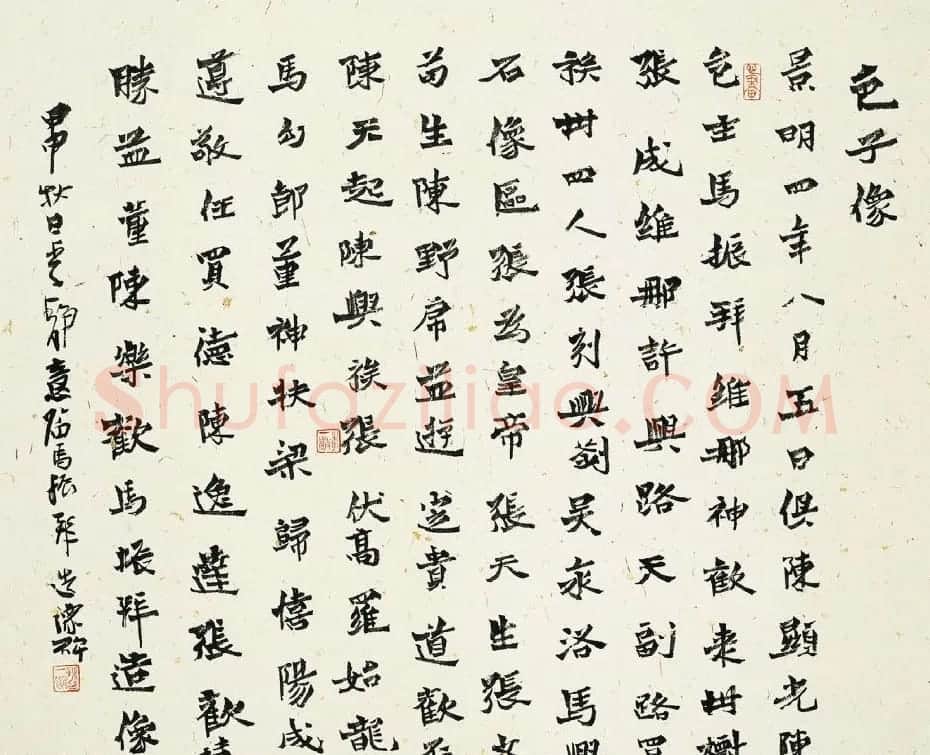 邑子像
景明四年八月五日俱陳顯光陳
邑主馬振拜維那神歡来卌
張成維那許興路天副路買
張卌四人張列興劉吴永洛馬興
石像區張為皇帝張天生張文
苟生陳野虎益遊芝貴道歡
陳天起陳興族張伏高羅始龍
馬勾郎董神扶梁歸憘陽成
遵敬任買德陳逸達張歡
勝益董陳樂歡馬振拜造像
甲申秋日靜意臨馬振拜造像碑
Shufaziliao.COM